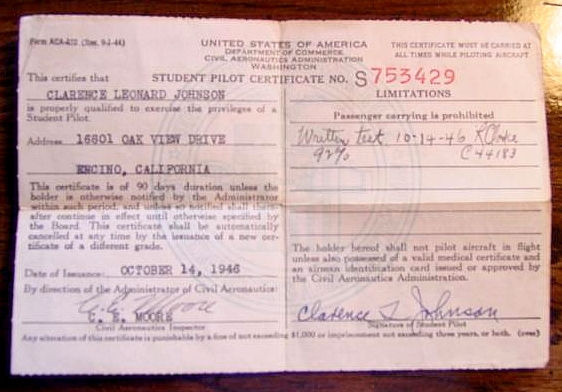 Form ACA-
UNITED STATES OF AMERICA
DEPARTMENT OF COMMERCE
CIVIL AERONAUTICS ADMINISTRATION
WASHINGTON
THIS CERTIFICATE MUST BE CARRIED AT
ALL TIMES WHILE PILOTING AIRCRAFT
STUDENT PILOT CERTIFICATE NO. S753429
This certifies that
CLARENCE LEONARD JOHNSON
is properly qualified to exercise the privileges of a
Student Pilot.
Address 16801 OAK VIEW DRIVE
ENCINO, CALIFORNIA
This certificate is of 90 days duration unless the
holder is otherwise notified by the Administrator
within such period, and unless so notified shall there-
after continue in effect until otherwise specified by
the Board. This certificate shall be automatically
cancelled at any time by the issuance of a new cer-
tificate of a different grade.
Date of Issuance: OCTOBER 14, 1946
By direction of the Administrator of Civil Aeronautics:
C. E. Moore
C. E. MOORE
Civil Aeronautics Inspector
LIMITATIONS
Passenger carrying is prohibited
Written test 10-14-46
92% C 44183
The holder hereof shall not pilot aircraft in flight
unless also possessed of a valid medical certificate and
an airman identification card issued or approved by
the Civil Aeronautics Administration.
Clarence L Johnson
Signature of Student Pilot
Any alteration of this certificate is punishable by a fine of not exceeding $1,000 or imprisonment not exceeding three years, or both. (over)